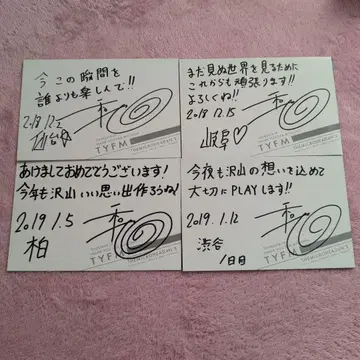 今 この瞬間を
誰よりも楽しんで!!
2018.12.2
仙台
TYFM
まだ見ぬ世界を見るために
これからも頑張ります!!
よろしくね!!
2018.12.15
岐阜♡
TYFM
あけましておめでとうございます!
今年も沢山いい思い出作ろうね!
2019.1.5
柏
TYFM
今夜も沢山の想いを込めて
大切にPLAYします!!
2019.1.12
渋谷
1日目
TYFM